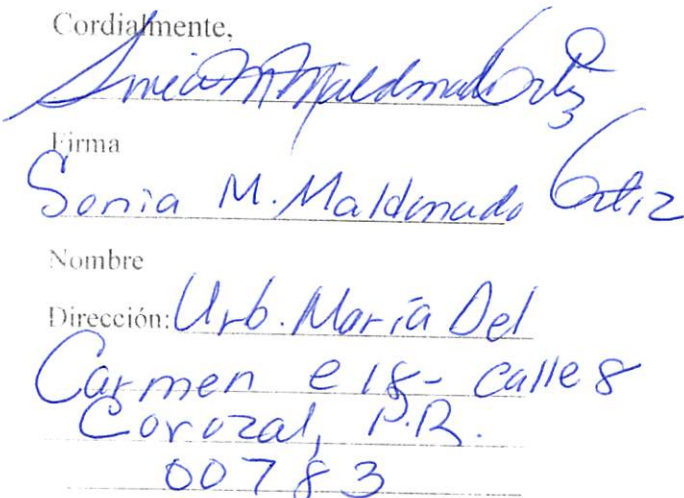 Cordialmente,
Sonia M Maldonado Ortiz
Firma
Sonia M. Maldonado Ortiz
Nombre
Dirección: Urb. María Del
Carmen e 18- calle 8
Corozal, P.R.
00783